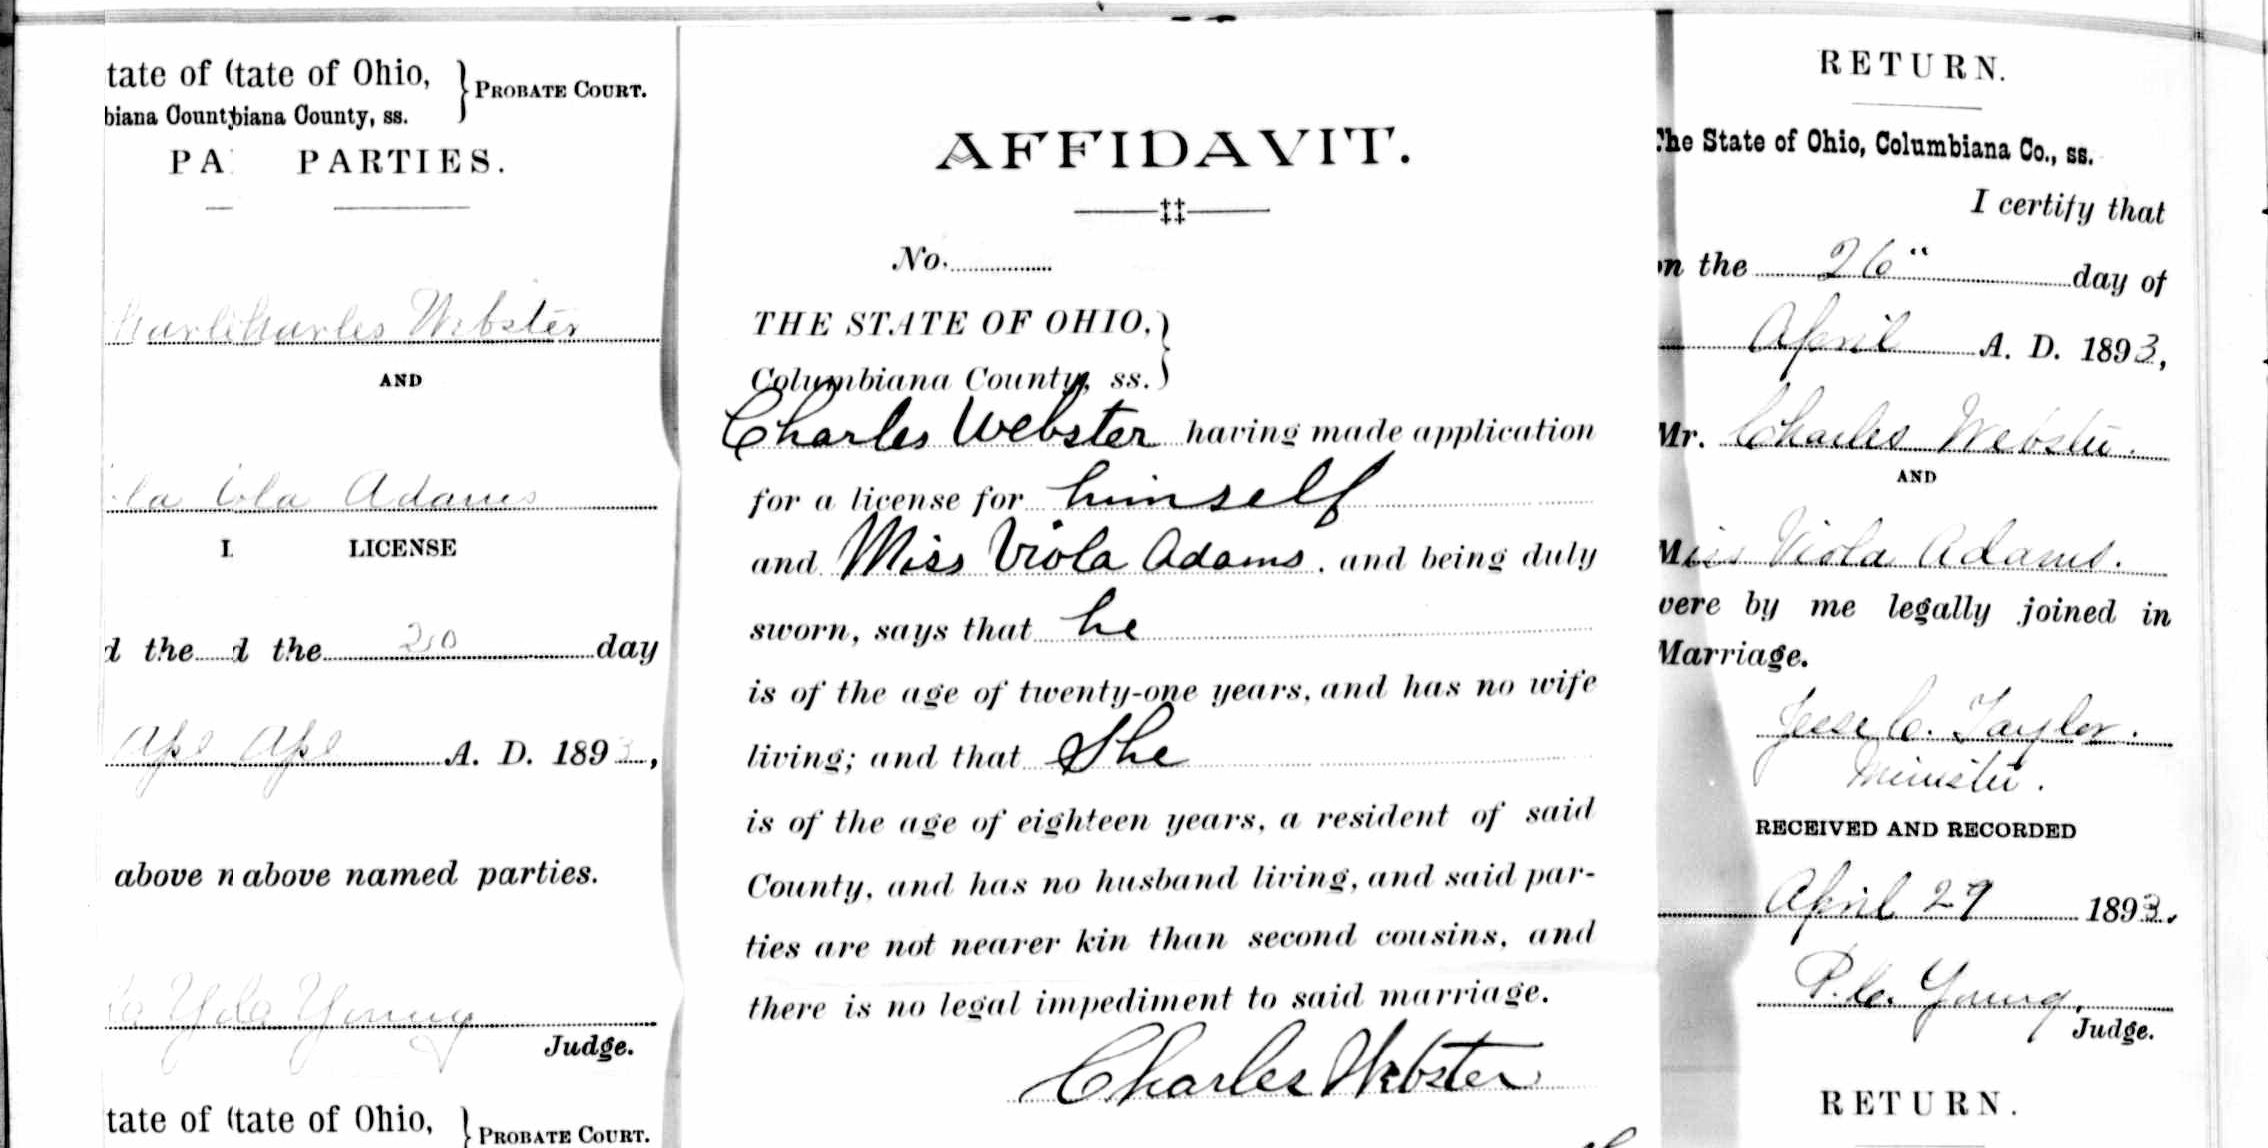 tate of (tate of Ohio, } PROBATE COURT.
biana Countbiana County, ss.
PA PARTIES.
harlharles Webster
AND
la ola Adams
L LICENSE
d the d the 20 day
Apl Apl A. D. 1893,
above n above named parties.
Young
Judge.
tate of (tate of Ohio, } PROBATE COURT.
AFFIDAVIT.
No.
THE STATE OF OHIO, }
Columbiana County, ss. }
Charles Webster having made application
for a license for himself
and Miss Viola Adams, and being duly
sworn, says that he
is of the age of twenty-one years, and has no wife
living; and that She
is of the age of eighteen years, a resident of said
County, and has no husband living, and said par-
ties are not nearer kin than second cousins, and
there is no legal impediment to said marriage.
Charles Webster
RETURN.
The State of Ohio, Columbiana Co., ss.
I certify that
on the 26" day of
April A. D. 1893,
Mr. Charles Webster.
AND
Miss Viola Adams.
were by me legally joined in
Marriage.
Jesse C. Taylor.
Minister.
RECEIVED AND RECORDED
April 29 1893.
P. C. Young,
Judge.
RETURN.